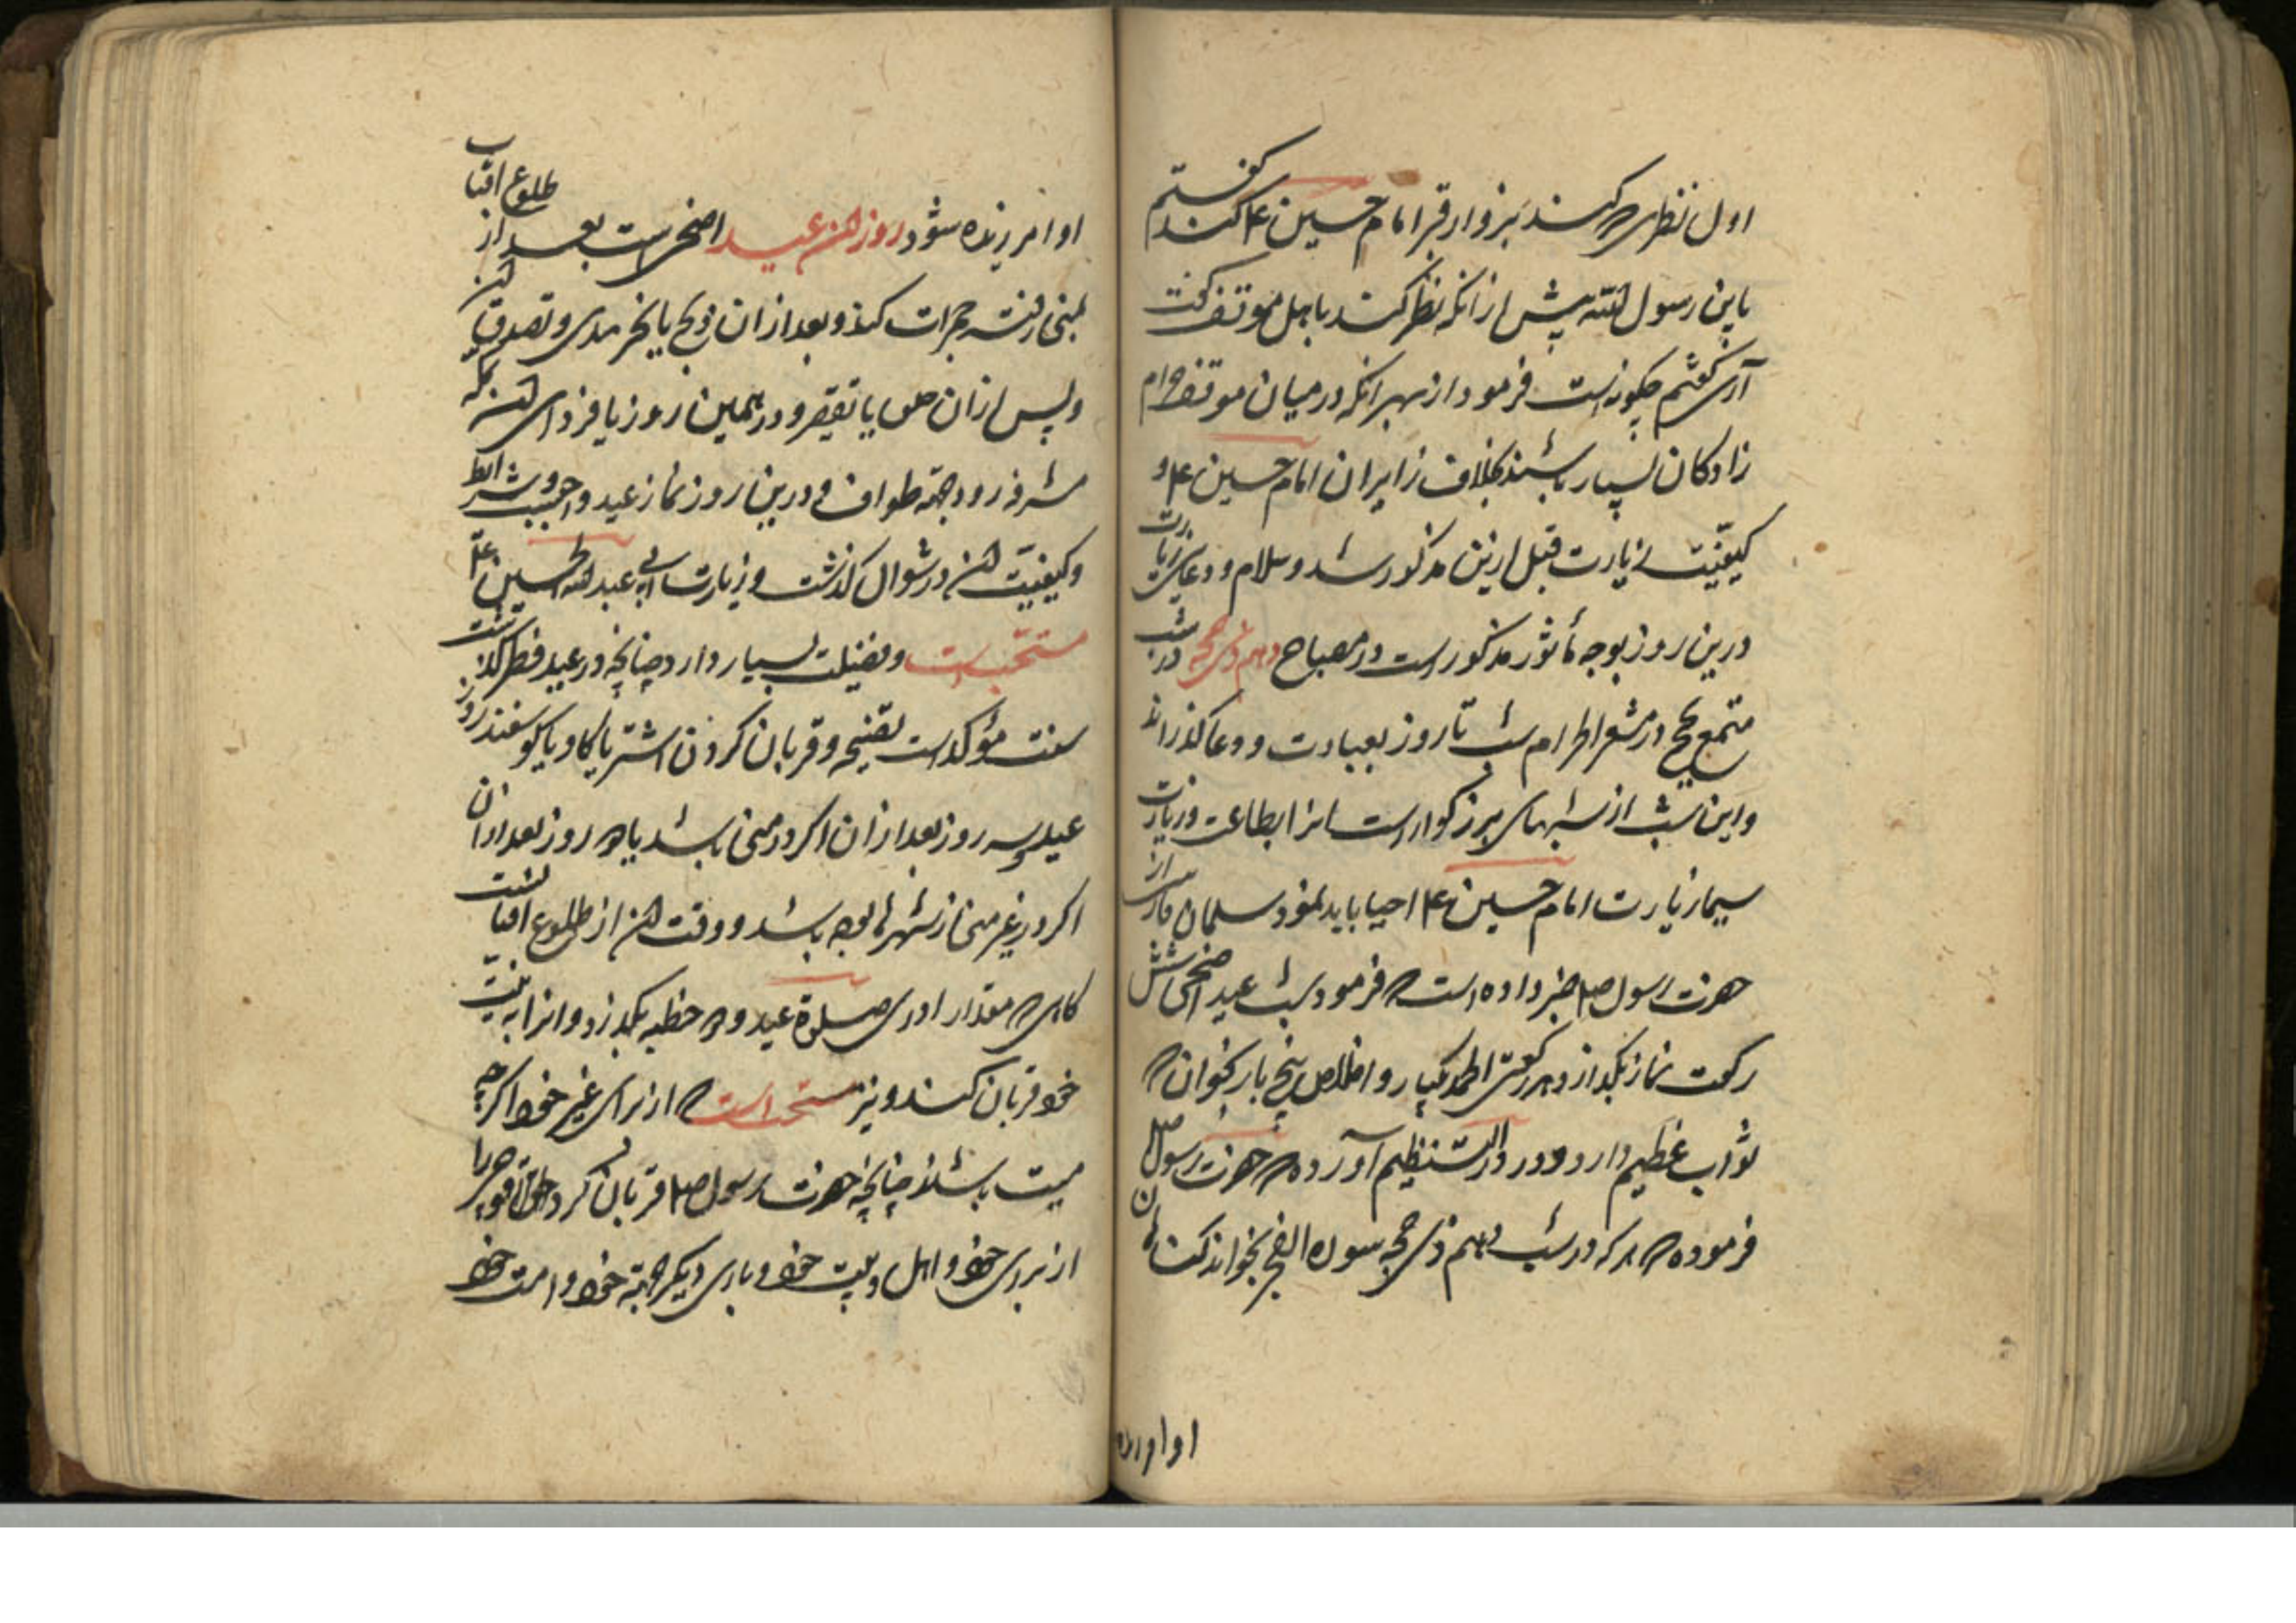 اول نظری که کند بزوار قبر امام حسین ع کند گفتم
یابن رسول الله پیش از آنکه نظر کند باهل موقف گفت
آری گفتم چگونه است فرمود از بهر آنکه در میان موقف حرام
زادگان بسیار باشند بخلاف زایران امام حسین ع و
کیفیّت زیارت قبل ازین مذکور شد و سلام و دعای زیارت
درین روز بوجه مأثور مذکور است در مصباح دهم ذی حجه در شب
متمتع بحج در مشعر الحرام شب تا روز بعبادت و دعا گذراند
و این شب از شبهای بزرگوار است انرا بطاعت و زیارت
سیما زیارت امام حسین ع احیا باید نمود سلمان فارسی از
حضرت رسول ص خبر داده است که فرمود شب عید اضحی شش
رکعت نماز بگذار در هر رکعتی الحمد یکبار و اخلاص پنج بار بخوان که
ثواب عظیم دارد و در در النظیم آورده که حضرت رسول ص
فرموده که هر که در شب دهم ذی حجه سوره الفجر بخواند گناهان
او امرزیده
او امرزیده شود روز ان عید اضحی است بعد از طلوع افتاب
بمنی رفته جمرات کند و بعد از ان ذبح یا نحر هدی و تصدق ان
و پس از ان حلق یا تقصیر و در همین روز یا فردای ان بمکه
مشرفه رود جهة طواف و درین روز نماز عید واجبست و شرایط
و کیفیّت ان در شوال گذشت و زیارت ابی عبد الله الحسین ع
مستحبست و فضیلت بسیار دارد چنانچه در عید فطر گذشت
سنت مؤکد است تضحیه و قربان کردن اشتر یا گاو یا گوسفند روز
عید و سه روز بعد از ان اگر در منی باشد یا دو روز بعد از ان
اگر در غیر منی از شهرها بوده باشد و وقت ان از طلوع افتابست
تا که مقدار ادای صلوة عید و دو خطبه بگذرد و انرا به نیت
خود قربان کند و نیز مستحب است که از برای غیر خود اگرچه
میت باشد چنانچه حضرت رسول ص قربان کرد قوچی را
از برای خود و اهل بیت خود و باری دیگر جهة خود و امت خود